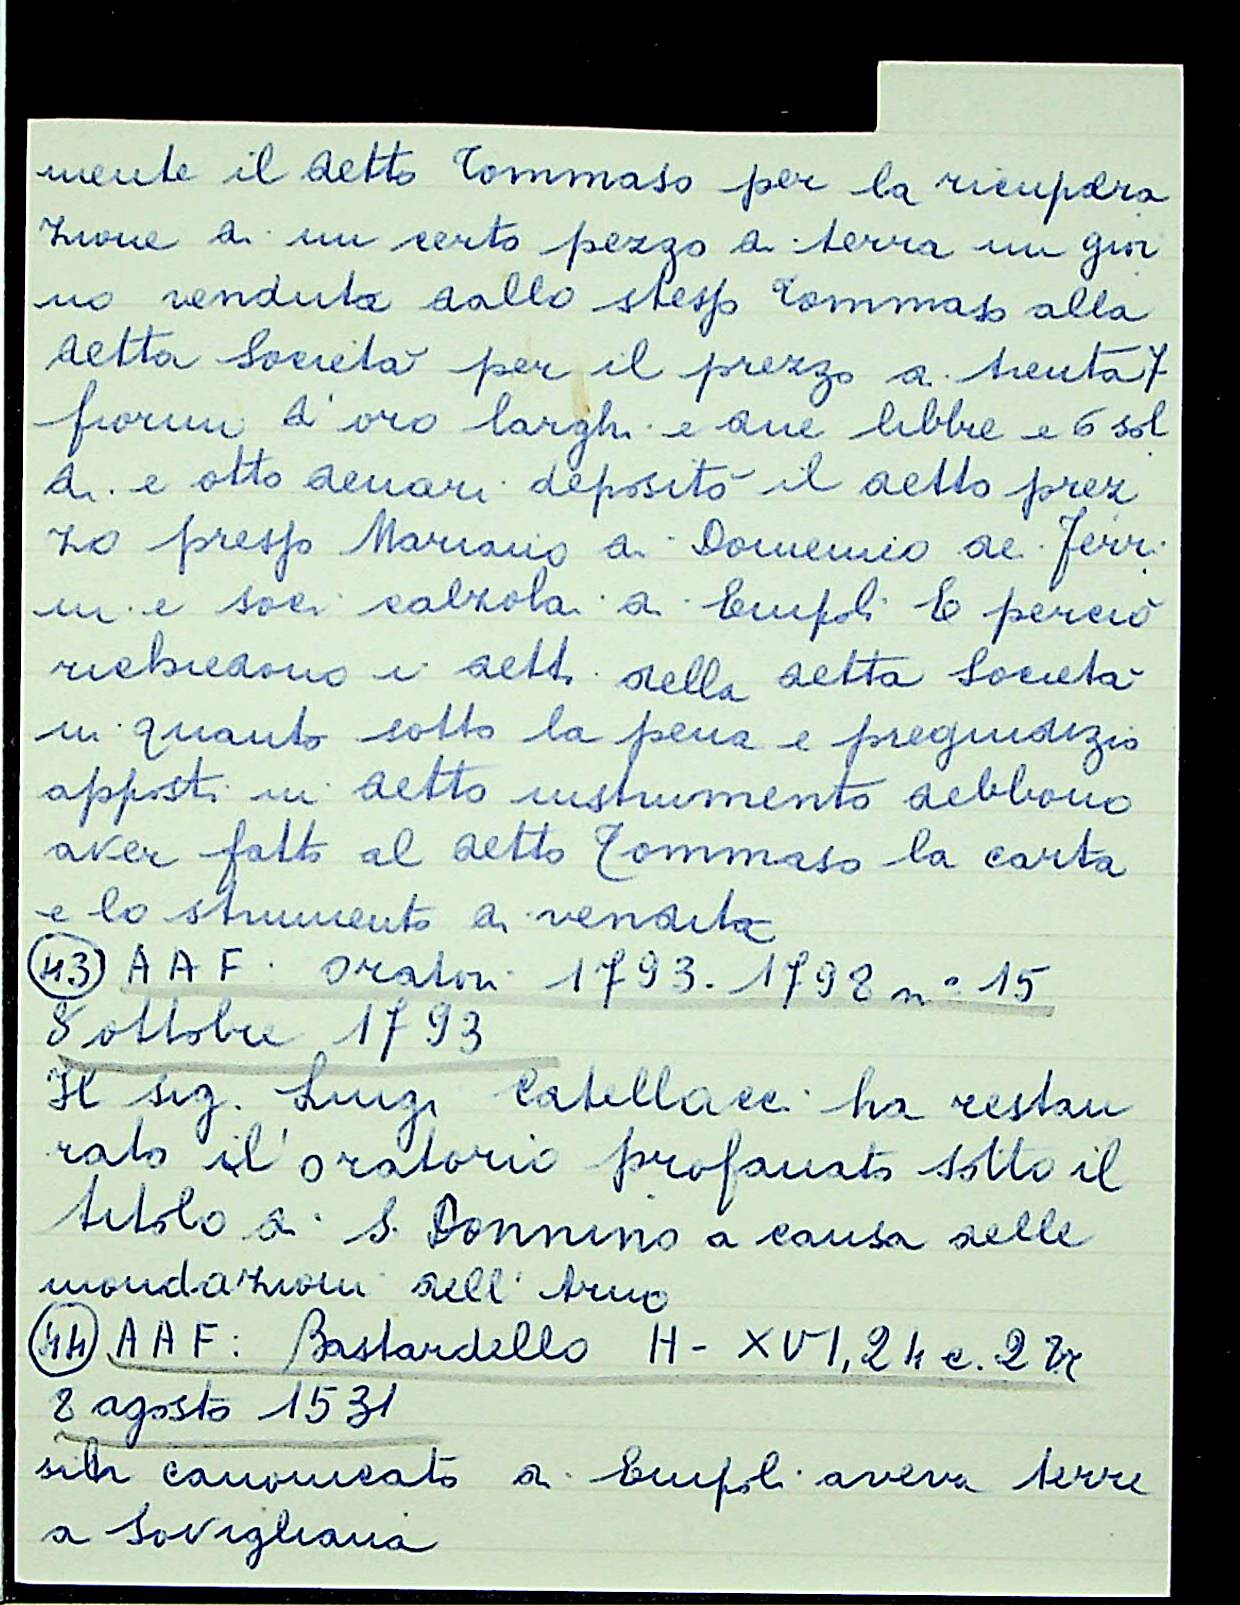 mente il detto Tommaso per la ricupera
zione di un certo pezzo di terra un gior
no venduta dallo stesso Tommaso alla
detta Società per il prezzo di trenta7
fiorini d'oro larghi e due libbre e 6 sol
di e otto denari depositò il detto prez
zo presso Mariano di Domenico de Ferri
ni e soci calzolai di Empoli E perciò
richiedono i detti della detta Società
in quanto sotto la pena e pregiudizio
apposti in detto instrumento debbono
aver fatto al detto Tommaso la carta
e lo strumento di vendita
43) AAF. Oratori 1793-1798 n° 15
8 ottobre 1793
Il sig. Luigi Catellacci ha restau
rato il' oratorio profanato sotto il
titolo di S. Donnino a causa delle
inondazioni dell'Arno
44) AAF: Bastardello H-XVI,24 c. 28r
8 agosto 1531
canonicato di Empoli aveva terre
a Sovigliana